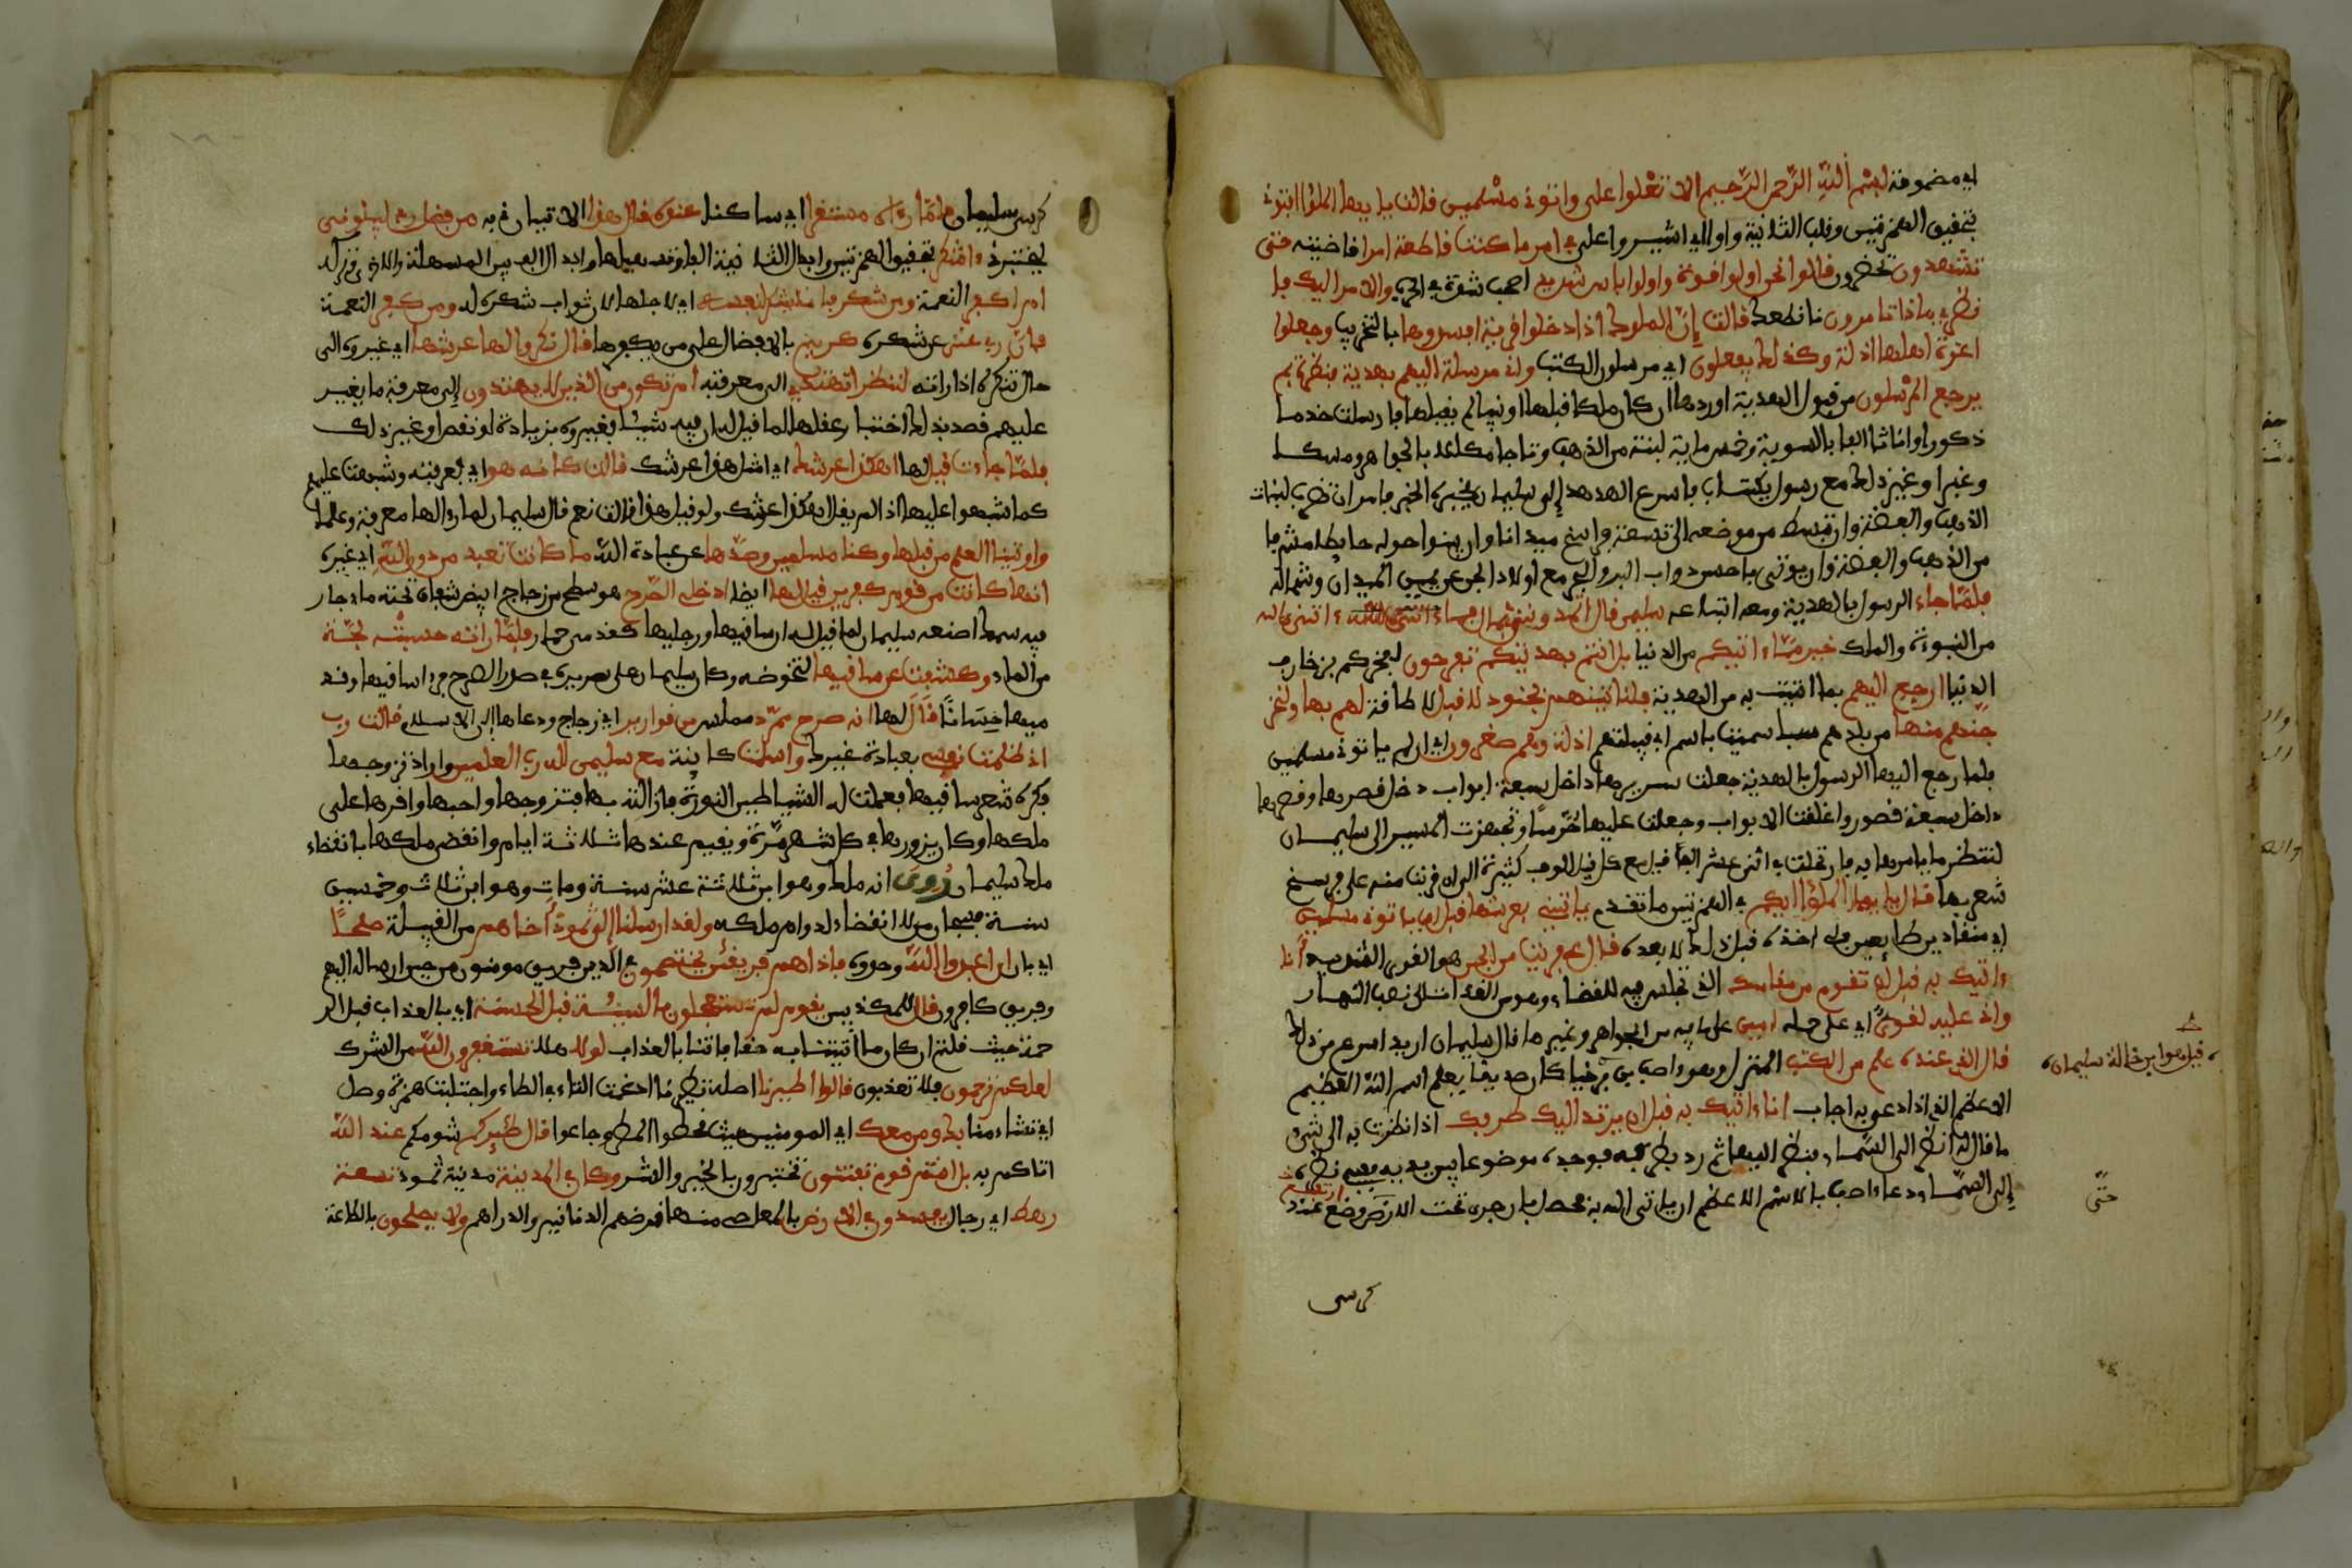 اي مضمونه بسم الله الرحمن الرحيم الا تعلوا علي واتون مسلمين قالت يا ايها الملؤا افتون
بتحقيق الهمزتين وقلب الثانية واوا اي اشيروا علي في امري ما كنت قاطعة امرا قاضيته حتى
تشهدون تحضرون قالوا نحن اولوا قوة واولوا باس شديد اصحاب شدة في الحرب والامر اليك فا
نظري ماذا تامرين نا نطعك قالت إن الملوك اذا دخلوا قرية افسدوها بالتخريب وجعلوا
اعزة اهلها اذلة وكذلك يفعلون اي مرسلوا الكتاب واني مرسلة اليهم بهدية فنظرة بم
يرجع المرسلون من قبول الهدية اوردها ان كان ملكا قبلها او نبيا لم يقبلها فارسلت خدما
ذكورا واناثا الفا بالسوية وخمس ماية لبنة من الذهب وتاجا مكللا بالجواهر ومسكا
وعنبرا وغير ذلك مع رسول بكتاب فاسرع الهدهد إلى سليمان يخبره الخبر فامر ان تضرب لبنات
الذهب والفضة وان تبسط من موضعه الى تسعة فراسخ ميدانا وان يبنوا حوله حايطا مشرفا
من الذهب والفضة وان يوتى باحسن دواب البر والبحر مع اولاد الجن عن يمين الميدان وشماله
فلما جاء الرسول بالهدية ومعه اتباعه سليمن قال اتمدونن بمال فما ءاتين الله
من النبوة والملك خير مما ءاتيكم من الدنيا بل انتم بهديتكم تفرحون لفخركم بزخارف
الدنيا ارجع اليهم بما اتيت به من الهدية فلناتينهم بجنود لا قبل لا طاقة لهم بها ولنخر
جنهم منها من بلدهم سبا سميت باسم ابي قبيلتهم اذلة وهم صغرون اي ان لم ياتون مسلمين
فلما رجع اليها الرسول بالهدية جعلت سريرها داخل سبعة ابواب داخل قصرها وقصرها
داخل سبعة قصور واغلقت الابواب وجعلت عليها حرسا وتجهزت المسير الى سليمان
لتنظر ما يامرها به فارتحلت في اثني عشر الف قيل مع كل قيل الوف كثيرة الى ان قربت منه على فرسخ
شعر بها قال يا يها الملؤا ايكم في الهمزتين ما تقدم ياتيني بعرشها قبل ان ياتون مسلمين
اي منقادين طايعين فلي اخذه قبل ذلك لا بعده قال عفريت من الجن هو القوي الشديد أنا
ءاتيك به قبل ان تقوم من مقامك الذي تجلس فيه للقضاء وهو من الغداة الى نصف النهار
واني عليه لقوي اي على حمله امين على ما فيه من الجواهر وغيرها قال سليمان اريد اسرع من ذلك
قال الذي عنده علم من الكتب المنزل وهو ءاصف بن برخيا كان صديقا يعلم اسم الله العظيم
الاعظم الذي اذا دعي به اجاب انا ءاتيك به قبل ان يرتد اليك طرفك اذا نظرت به الى شيء
ما قال له انظر الى السماء فنظر اليها ثم رد بطرفه فوجده موضوعا بين يديه ففي نظره
إلى السماء دعا ءاصف بالاسم الاعظم ان ياتي الله به فحصل بان جرى تحت الارض وضع عند
ارتفع
قيل هوا بن خالة سليمان
حتى
كرسي
كرسي سليمان فلما رءاه مستقرا اي ساكنا عنده قال هذا الاتيان لي به من فضل ربي ليبلوني
ليختبرني ءاشكر بتحقيق الهمزتين وابدال الثانية الفا وتسهيلها وادخال الف بين المسهلة والاخرى وتركه
ام اكفر النعمة ومن شكر فانما يشكر لنفسه اي لاجلها لان ثواب شكره له ومن كفر النعمة
فان ربي غني عن شكره كريم بالافضال على من يكفرها قال نكروا لها عرشها اي غيروه الى
حال تنكره اذا راته لننظر اتهتدي الى معرفته ام تكون من الذين لا يهتدون إلى معرفة ما يغير
عليهم قصد بذلك اختبار عقلها لما قيل له ان فيه شيئا فغيروه بزيادة او نقص او غير ذلك
فلما جاءت قيل لها اهكذا عرشك اي امثل هذا عرشك قالت كانه هو اي فعرفته وشبهت عليهم
كما شبهوا عليها اذ لم يقل اهكذا عرشك ولو قيل هذا قالت نعم قال سليمان لما رءا لها معرفة وعلما
واوتينا العلم من قبلها وكنا مسلمين وصدها عن عبادة الله ما كانت تعبد من دون الله اي غيره
انها كانت من قوم كفرين قيل لها ايضا ادخلي الصرح هو سطح من زجاج ابيض شفاف تحته ماء جار
فيه سمك اصنعه سليمان لما قيل له ان ساقيها ورجليها كقدمي حمار فلما راته حسبته لجة
من الماء وكشفت عن ساقيها لتخوضه وكان سليمان على سريره في صدر الصرح فرءا ساقيها وقد
ميها حسانا قال لها انه صرح ممرد مملس من قوارير اي زجاج ودعاها إلى الاسلام قالت رب
اني ظلمت نفسي بعبادة غيرك واسلمت كاينة مع سليمن لله رب العلمين واراد تزوجها
فكره شعر ساقيها فعملت له الشياطين النورة فازالته بها فتزوجها واحبها واقرها على
ملكها وكان يزورها في كل شهر مرة ويقيم عندها ثلاثة ايام وانقضى ملكها بانقضاء
ملك سليمان رُوِيَ انه ملك وهوا بن ثلاثة عشر سنة ومات وهوا بن ثلاث وخمسين
سنة فسبحان من لا انقضاء لدوام ملكه ولقد ارسلنا إلى ثمود أخاهم من القبيلة صلحا
اي بان ان اعبدوا الله وحدوه فاذا هم فريقن يختصمون في الدين فريق مومنون من حين ارساله اليهم
وفريق كافرون قال للمكذبين يقوم لم تستعجلون بالسيئة قبل الحسنة اي بالعذاب قبل الر
حمة حيث قلتم ان كان ما اتيتنا به حقا فاتنا بالعذاب لولا هلا تستغفرون الله من الشرك
لعلكم ترحمون فلا تعذبون قالوا اطيرنا اصله تطيرنا ادغمت التاء في الطاء واجتلبت همزة وصل
اي تشاءمنا بك وبمن معك اي المومنين حيث قحطوا المطر وجاعوا قال طئركم شومكم عند الله
اتاكم به بل انتم قوم تفتنون تختبرون بالخير والشر وكان في المدينة مدينة ثمود تسعة
رهط اي رجال يفسدون في الارض بالمعاصي منها قرضهم الدنانير والدراهم ولا يصلحون بالطاعة